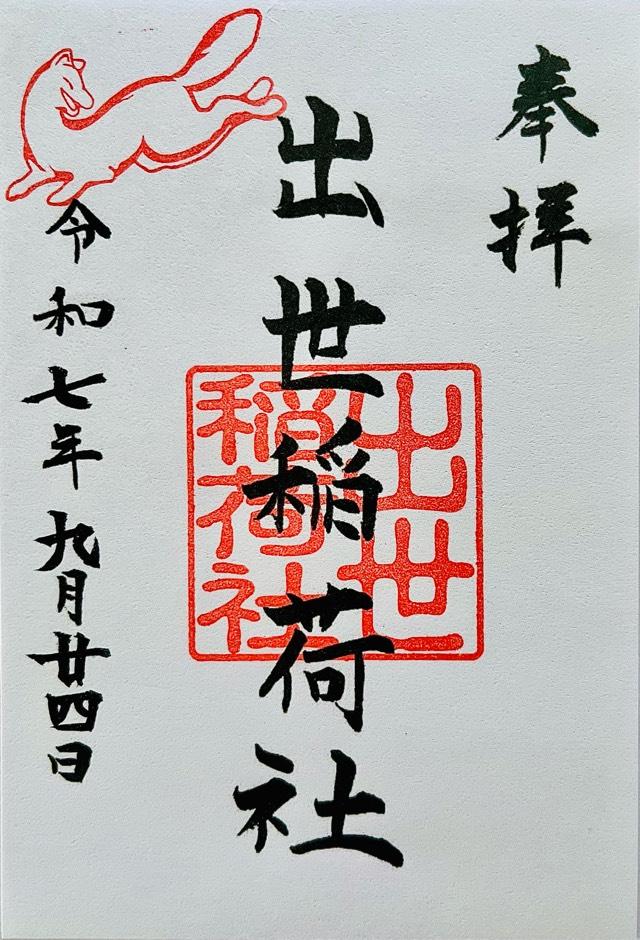 奉拝
出世稲荷社
出世
稲荷社
令和七年九月廿四日